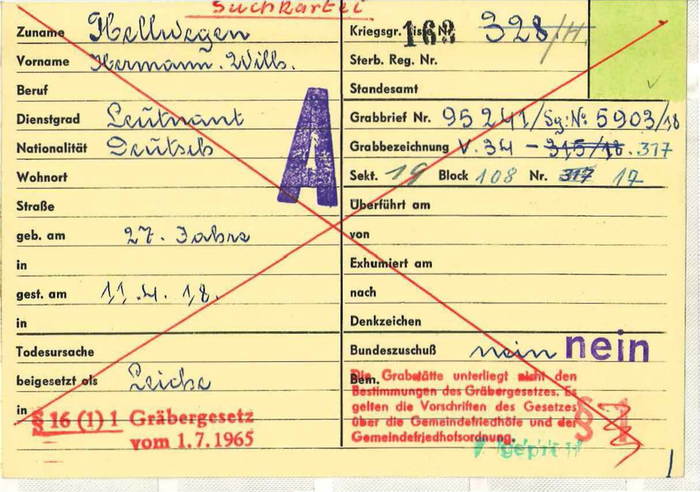 Suchkartei
Zuname Hellwegen
Vorname Hermann. Willh.
Beruf
Dienstgrad Leutnant
Nationalität Deutsch
Wohnort
Straße
geb. am 27. Jahre
in
gest. am 11.4.18.
in
Todesursache
beigesetzt als Leiche
in
§ 16 (1) 1 Gräbergesetz
vom 1.7.1965
A
Kriegsgr. Liste Nr. 163 328/H
Sterb. Reg. Nr.
Standesamt
Grabbrief Nr. 95241/Sg: No 5903/18
Grabbezeichnung V. 34 - 315/18. 317
Sekt. 19 Block 108 Nr. 317 17
Überführt am
von
Exhumiert am
nach
Denkzeichen
Bundeszuschuß nein nein
Bem.
Die Grabstätte unterliegt nicht den
Bestimmungen des Gräbergesetzes. Es
gelten die Vorschriften des Gesetzes
über die Gemeindefriedhöfe und der
Gemeindefriedhofsordnung.
§ 1